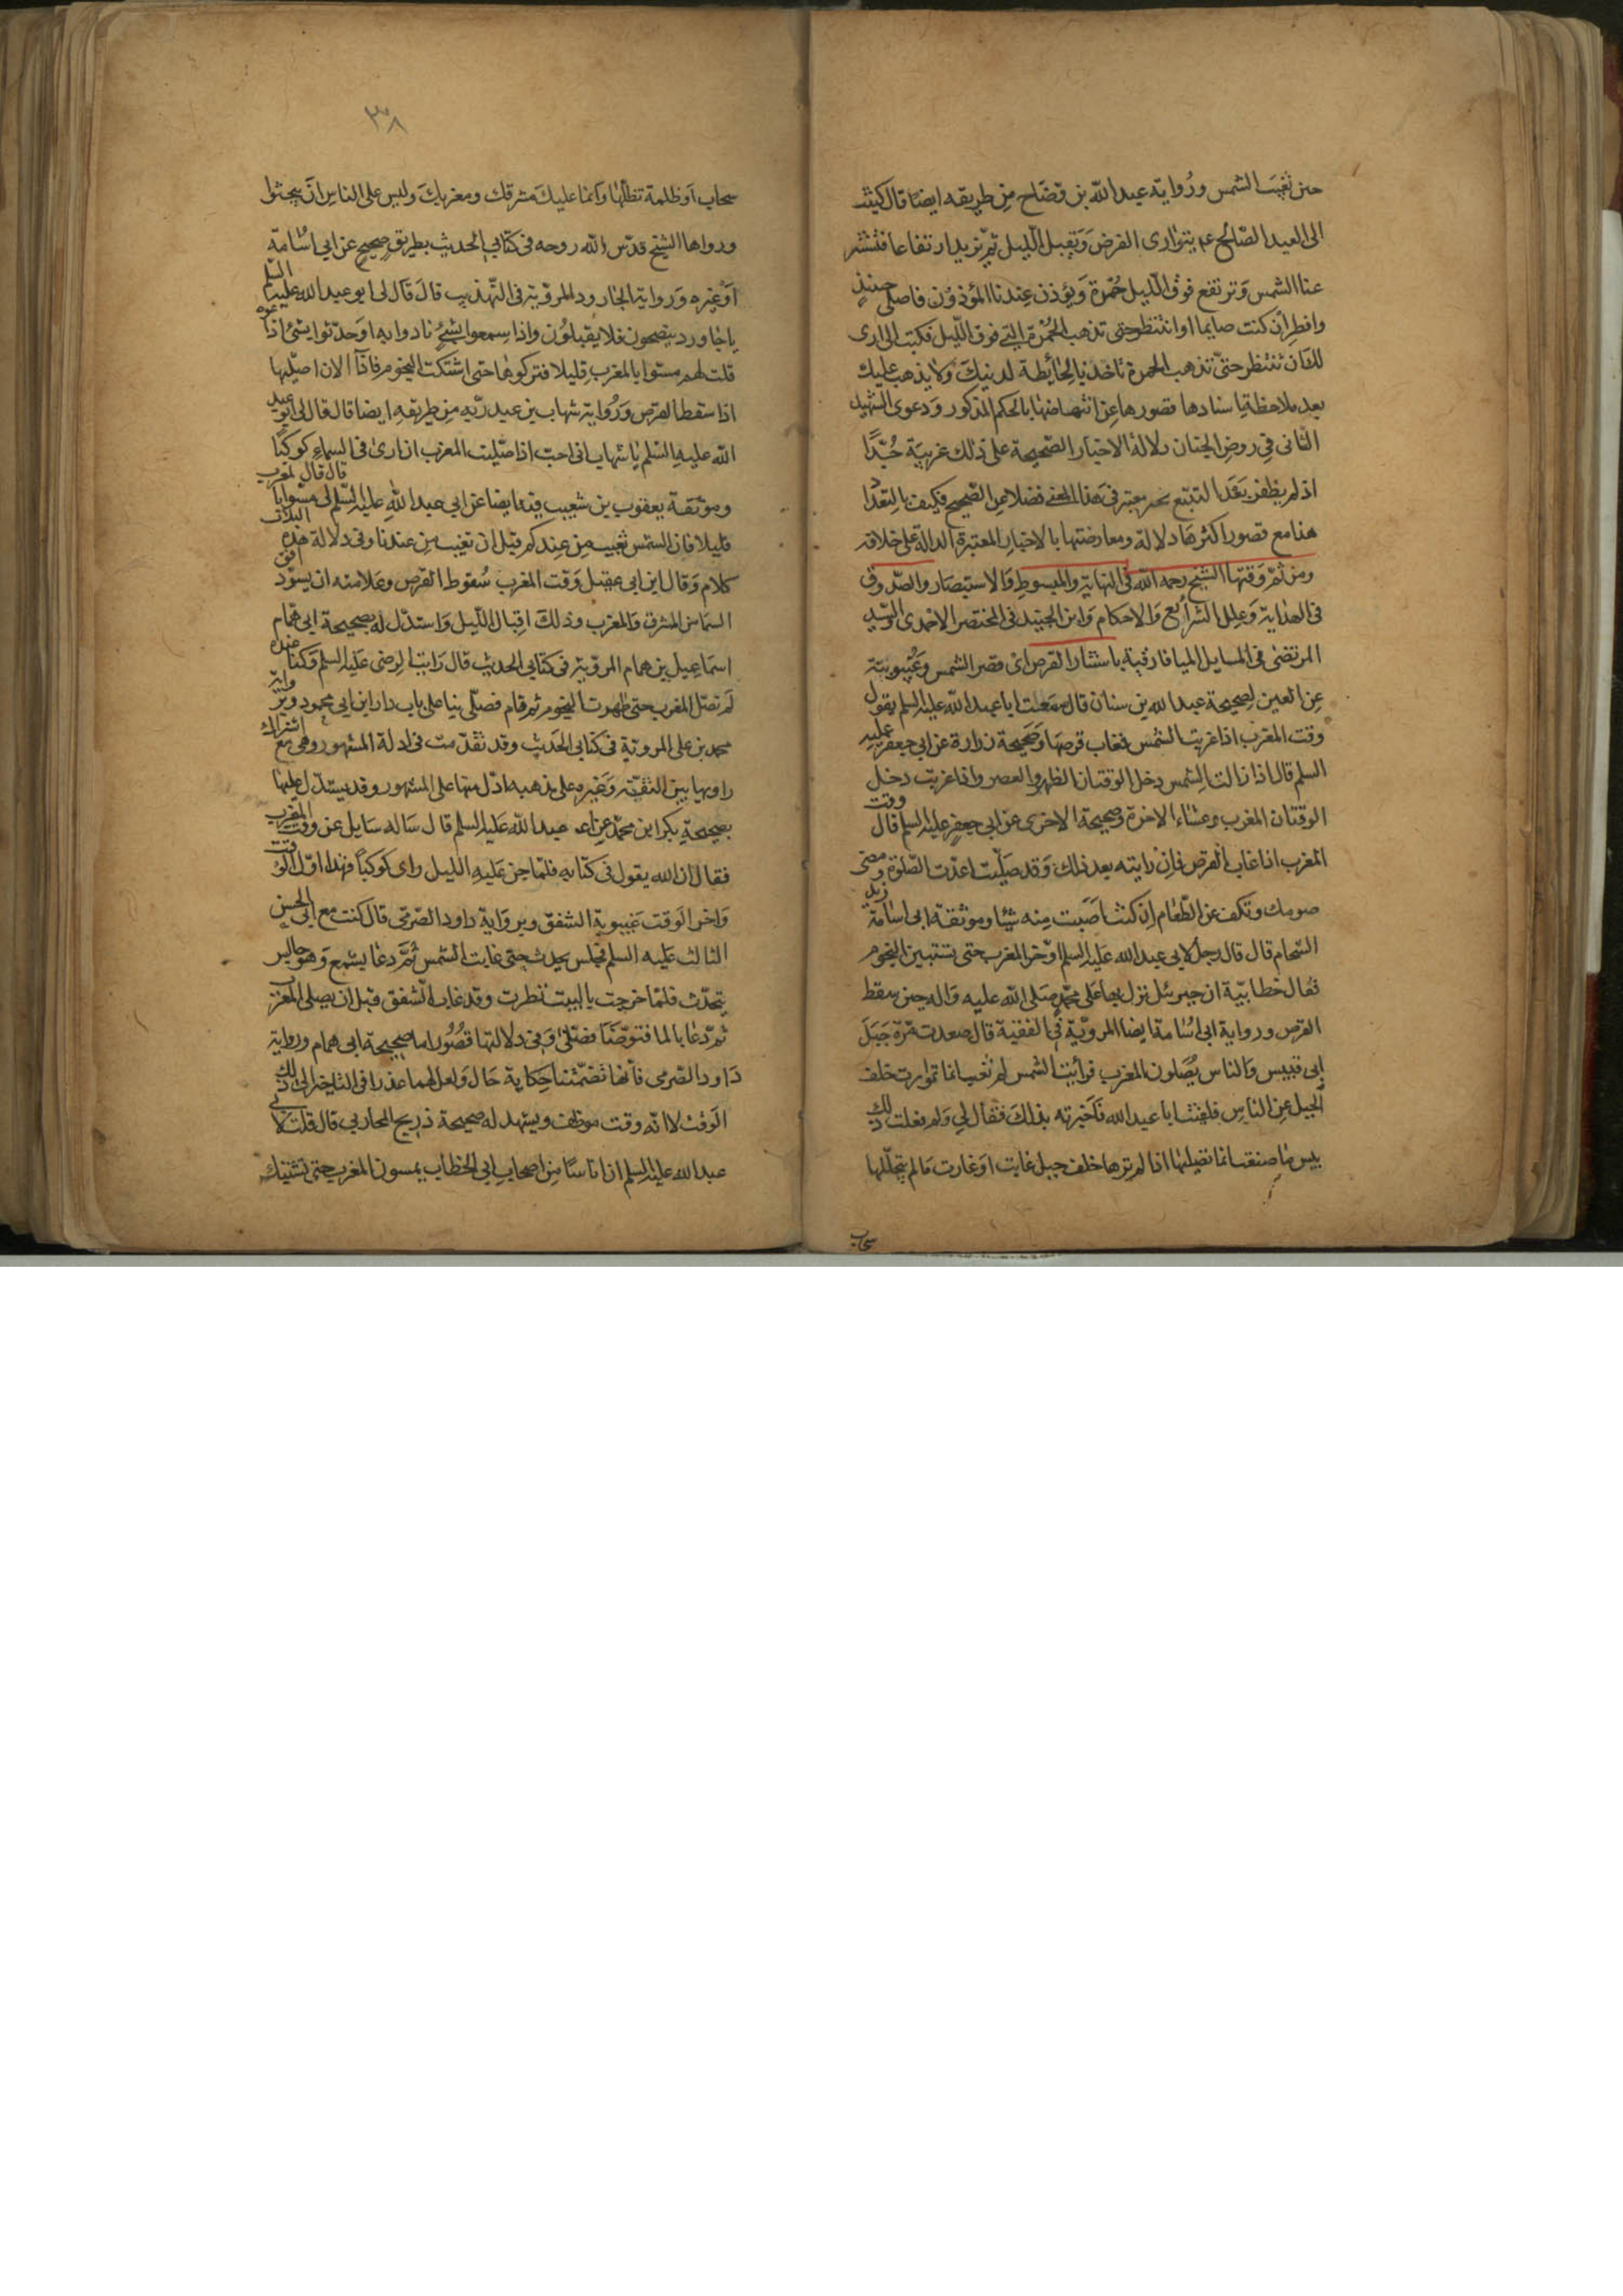 حين تغيب الشمس ورواية عبد الله بن وضاح من طريقه ايضا قال كتبت
الى العبد الصالح ع يتوارى القرص ويقبل الليل ثم يزيد ارتفاعا فتستتر
عنا الشمس وترتفع فوق الليل حمرة ويؤذن عندنا المؤذون فاصلي حينئذ
وافطر ان كنت صايما او انتظر حتى تذهب الحمرة التي فوق الليل فكتب الى ارى
لك ان تنتظر حتى تذهب الحمرة تاخذ بالحائطة لدينك ولا يذهب عليك
بعد ملاحظة اسنادها قصورها عن انتهاضها بالحكم المذكور ودعوى الشهيد
الثاني في روض الجنان دلالة الاخبار الصحيحة على ذلك غريبة جدا
اذ لم يظفر بعد التتبع بخبر معتبر في هذا المعنى فضلا عن الصحيح فكيف بالتعدد
هذا مع قصور اكثرها دلالة ومعارضتها بالاخبار المعتبرة الدالة على خلافه
ومن ثم وقتها الشيخ رحمه الله في النهاية والمبسوط والاستبصار والصدوق
في الهداية وعلل الشرايع والاحكام وابن الجنيد في المختصر الاحمدى والسيد
المرتضى في المسايل الميافارقية باستتار القرص اى قصر الشمس وغيبوبته
عن العين لصحيحة عبد الله بن سنان قال سمعت ابا عبد الله عليه السلم يقول
وقت المغرب اذا غربت الشمس فغاب قرصها وصحيحة زرارة عن ابي جعفر عليه
السلم قال اذا زالت الشمس دخل الوقتان الظهر والعصر واذا غربت دخل
الوقتان المغرب وعشاء الاخرة وصحيحة الاخرى عن ابي جعفر عليه السلم قال وقت
المغرب اذا غاب القرص فان رايته بعد ذلك وقد صليت اعدت الصلوة ومضى
صومك وتكف عن الطعام ان كنت اصبت منه شيئا وموثقة ابى اسامة زيد
الشحام قال قال رجل لابي عبد الله عليه السلم اؤخر المغرب حتى تستبين النجوم
فقال خطابية ان جبرئل نزل بها على محمد صلى الله عليه واله حين سقط
القرص ورواية ابى اسامة ايضا المروية في الفقيه قال صعدت مرة جبل
ابى قبيس والناس يصلون المغرب فرأيت الشمس لم تغب انما توارت خلف
الجبل عن الناس فلقيت ابا عبد الله فاخبرته بذلك فقال لي ولم فعلت ذلك
بيس ما صنعت انما تصليها اذا لم ترها خلف جبل غابت او غارت ما لم يتجللها
سحاب
٣٨
سحاب او ظلمة تظلها وانما عليك مشرقك ومغربك وليس على الناس ان يبحثوا
ورواها الشيخ قدس الله روحه في كتابي الحديث بطريق صحيح عن ابي اسامة
او غيره ورواية الجارود المروية في التهذيب قال قال لى ابو عبد الله عليه السلم
يا جارود ينصحون فلا يقبلون واذا سمعوا بشئ نادوا به او حدثوا بشئ اذاعوه
قلت لهم مسوا بالمغرب قليلا فتركوها حتى اشتبكت النجوم فانا الان اصليها
اذا سقط القرص ورواية شهاب بن عبد ربه من طريقه ايضا قال قال لى ابو عبد
الله عليه السلم يا شهاب انى احب اذا صليت المغرب ان ارى في السماء كوكبا
وموثقة يعقوب بن شعيب فيه ايضا عن ابى عبد الله عليه السلم قال قال لى مسوا بالمغرب
قليلا فان الشمس تغيب من عندكم قبل ان تغيب من عندنا وفي دلالة هذه الثلاث
كلام وقال ابن ابي عقيل وقت المغرب سقوط القرص وعلامته ان يسود افق
السماء من المشرق والمغرب وذلك اقبال الليل واستدل له بصحيحة ابى همام
اسماعيل بن همام المروية في كتابي الحديث قال رايت الرضى عليه السلم وكنا عنده
لم نصل المغرب حتى ظهرت النجوم ثم قام فصلى بنا على باب دار ابن ابي محمود ورواية
محمد بن على المروية في كتابي الحديث وقد تقدمت في ادلة المشهور وهى مع اشتراك
راويها بين الثقة وغيره على مذهبه ادل منها على المشهور وقد يستدل عليها
بصحيحة بكر ابن محمد عن ابى عبد الله عليه السلم قال ساله سايل عن وقت المغرب
فقال ان الله يقول في كتابه فلما جن عليه الليل راى كوكبا فهذا اول الوقت
واخر الوقت غيبوبة الشفق وبرواية داود الصرمى قال كنت مع ابي الحسن
الثالث عليه السلم فجلس يحدث حتى غابت الشمس ثم دعا بشمع وهو جالس
يتحدث فلما خرجت بالبيت نظرت وقد غاب الشفق قبل ان يصلى المغرب
ثم دعا بالما فتوضا فصلى وفي دلالتها قصور اما صحيحة ابى همام ورواية
داود الصرمى فانها تضمنتا حكاية حال ولعل لهما عذرا في التاخير الى ذلك
الوقت لا انه وقت موظف ويشهد له صحيحة ذريح المحاربي قال قلت لابي
عبد الله عليه السلم ان اناسا من اصحاب ابي الخطاب يمسون المغرب حتى تشتبك